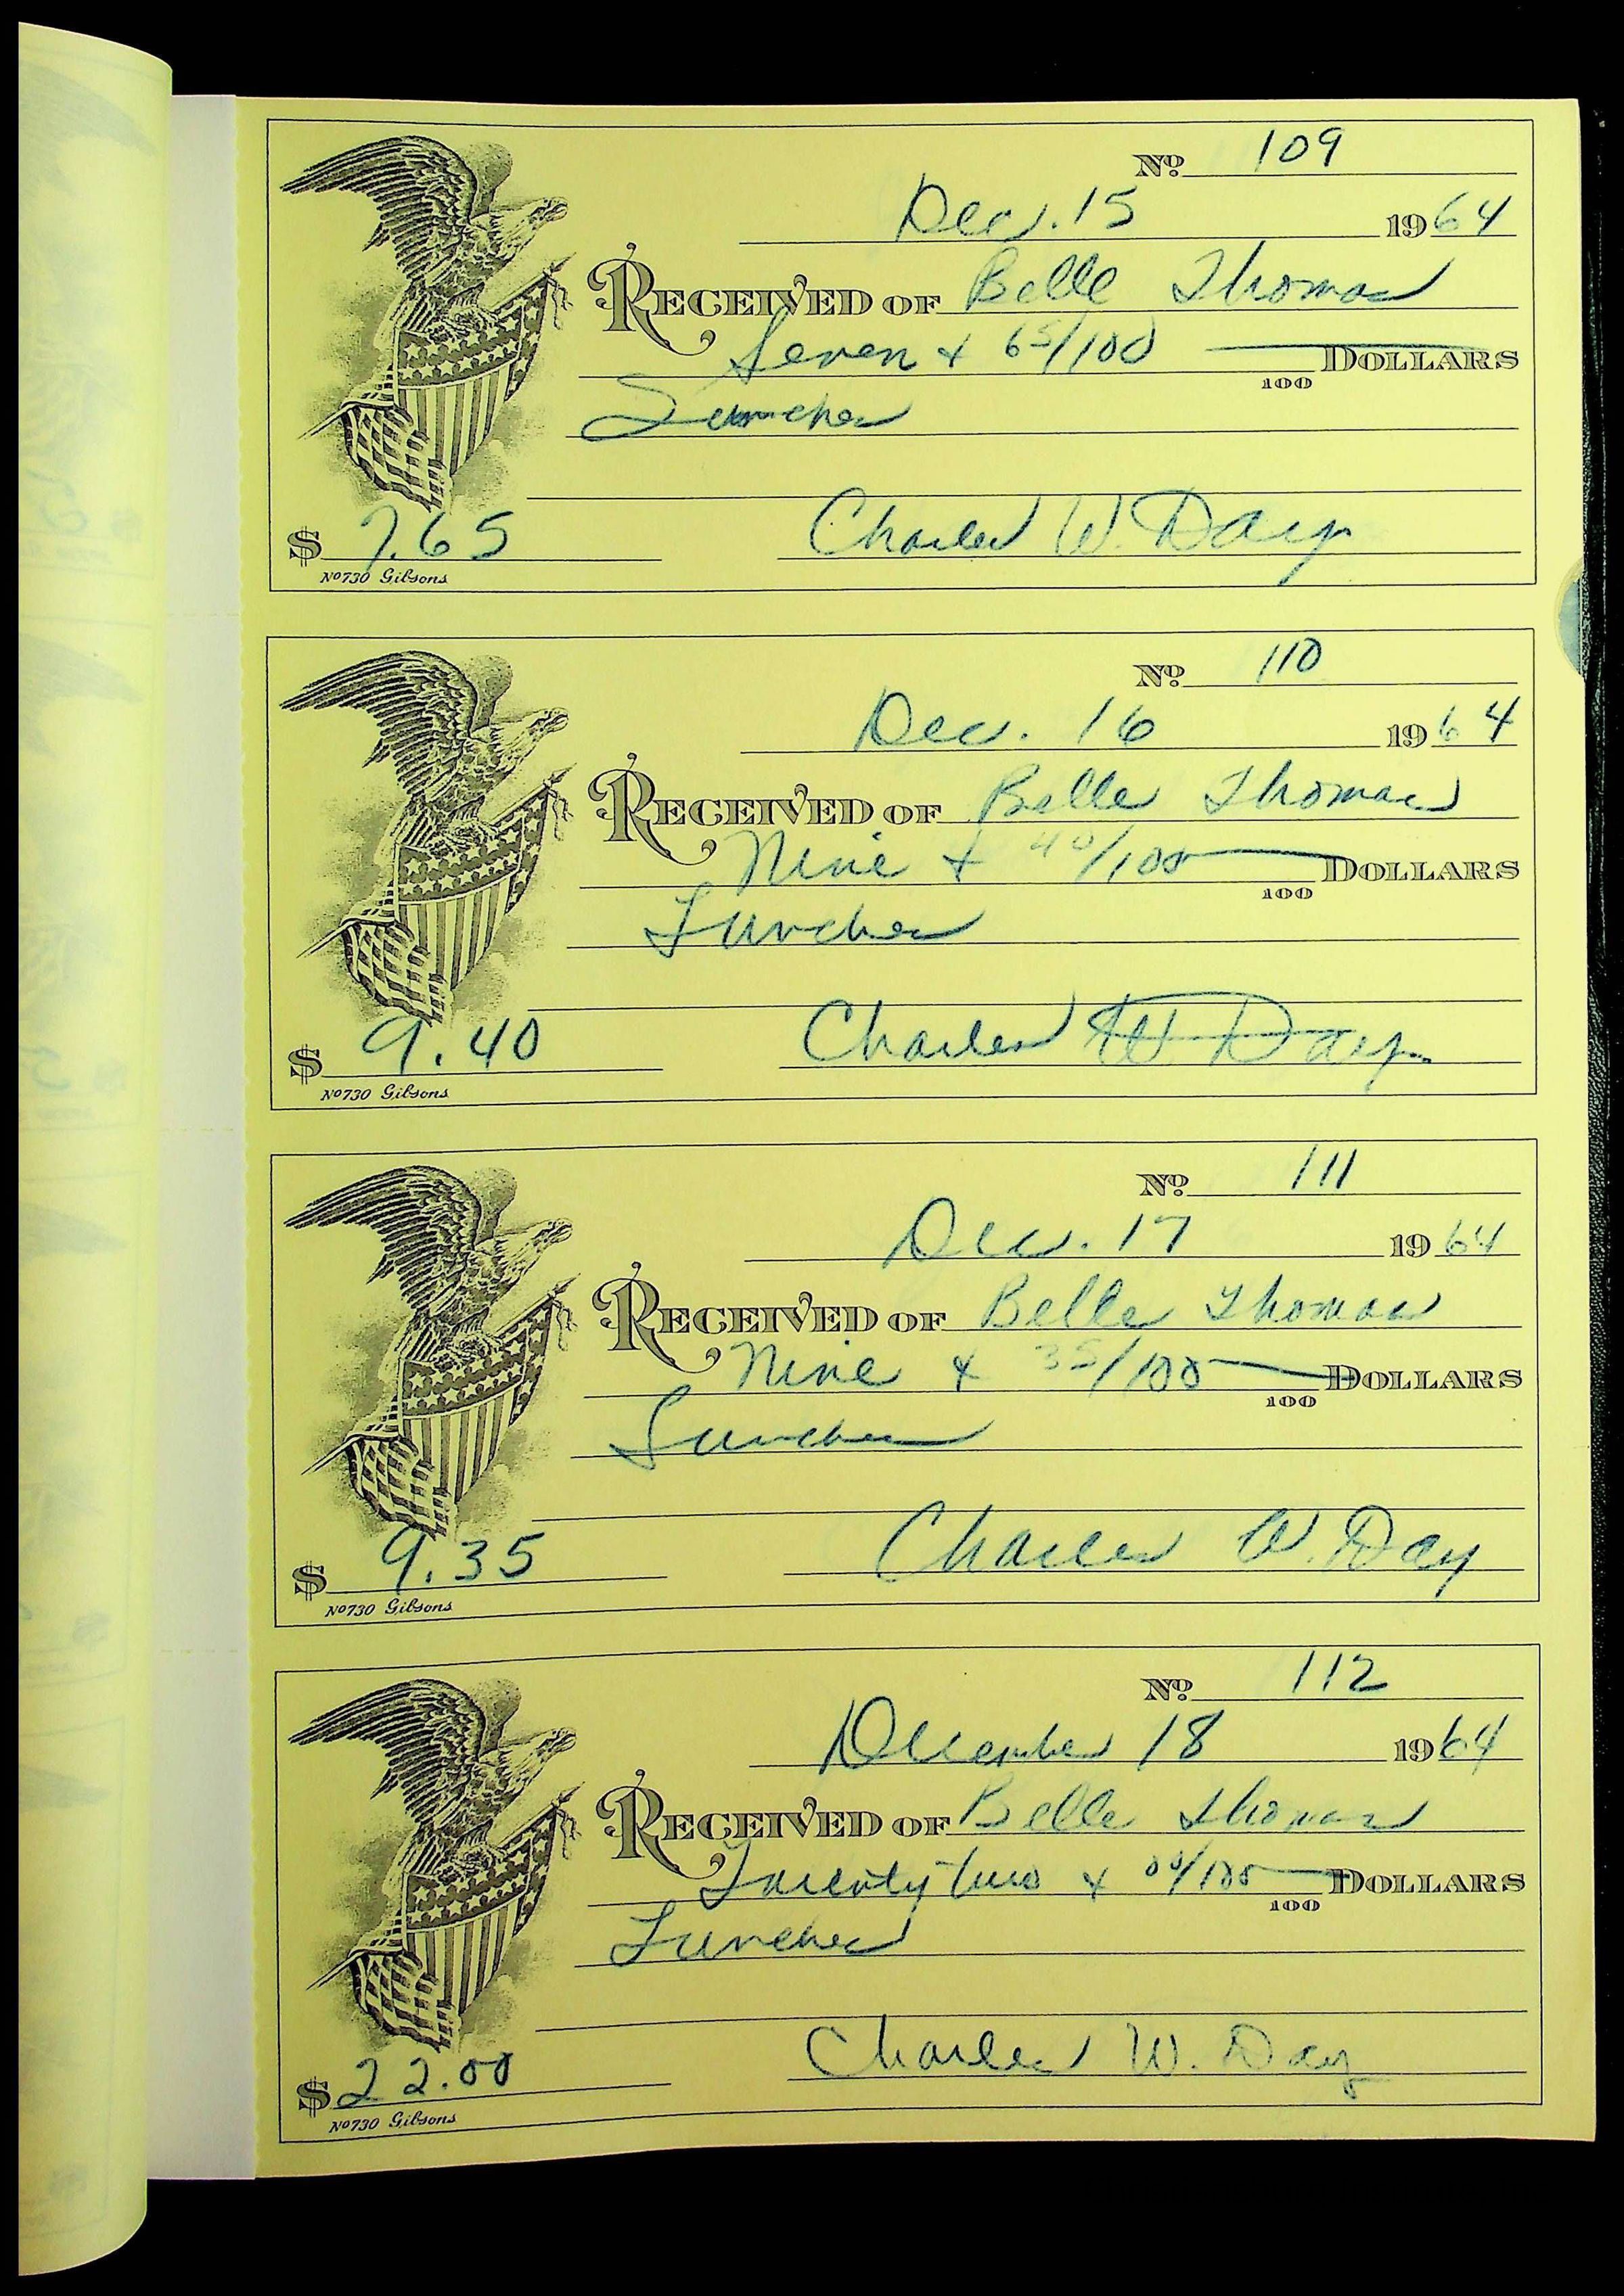 No 109
Dec. 15 1964
RECEIVED OF Belle Thomas
Seven + 65/100 DOLLARS
100
Lunches
$ 7.65 Charles W. Day
No 730 Gibsons
No 110
Dec. 16 1964
RECEIVED OF Belle Thomas
Nine + 40/100 DOLLARS
100
Lunches
$ 9.40 Charles W. Day
No 730 Gibsons
No 111
Dec. 17 1964
RECEIVED OF Belle Thomas
Nine + 35/100 DOLLARS
100
Lunches
$ 9.35 Charles W. Day
No 730 Gibsons
No 112
December 18 1964
RECEIVED OF Belle Thomas
Twenty two + 00/100 DOLLARS
100
Lunches
$ 22.00 Charles W. Day
No 730 Gibsons